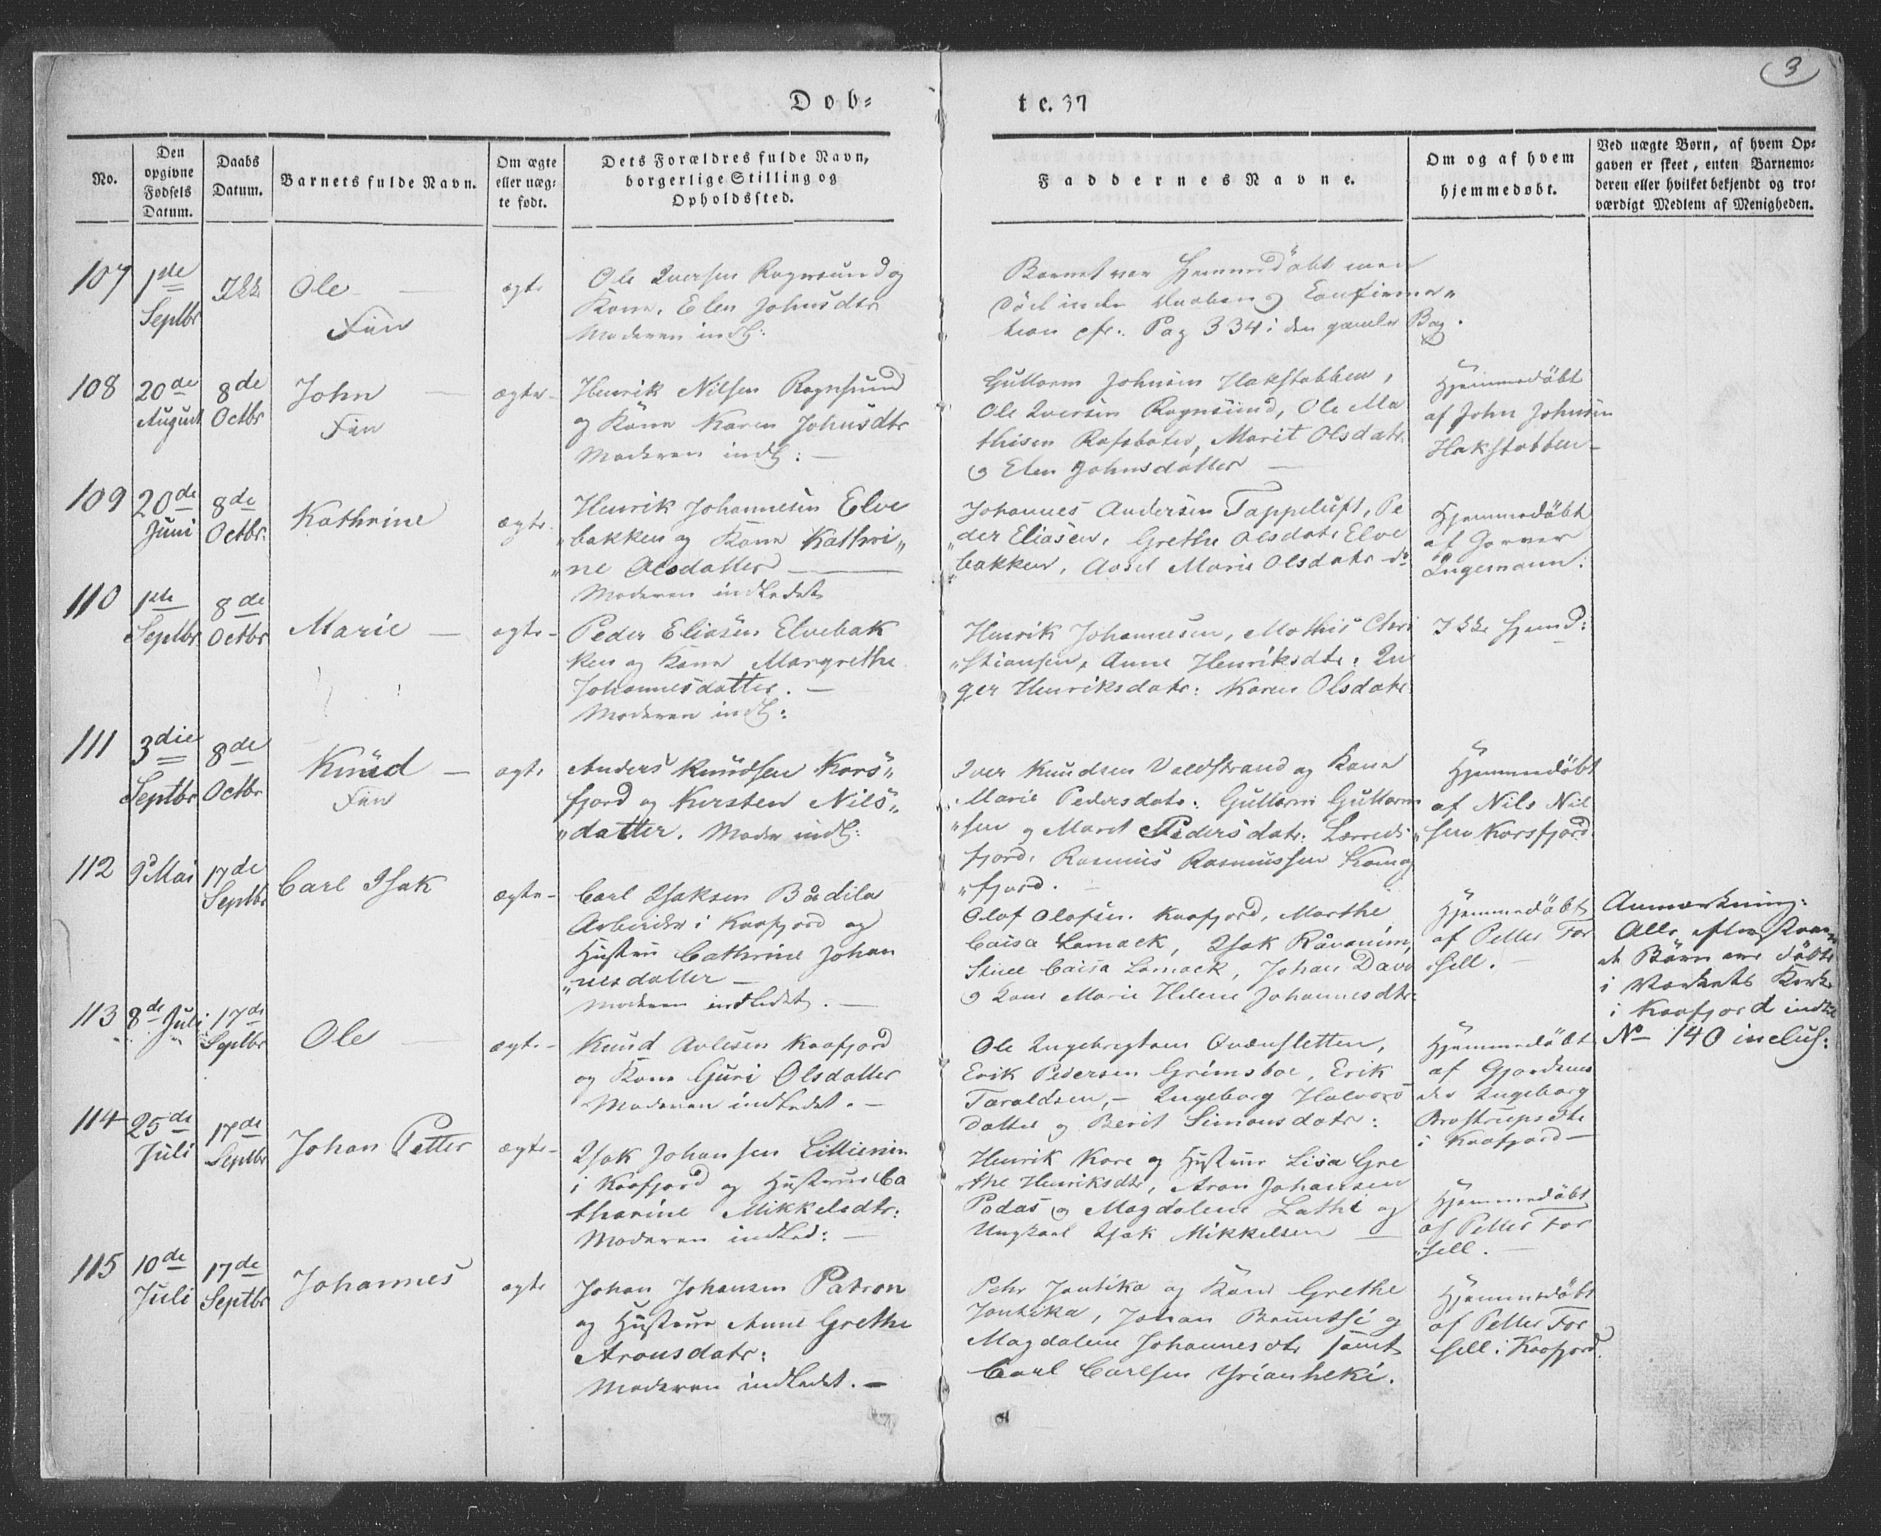 3
Døb-
te. 37
No.
Den
opgivne
Fødsels
Datum.
Daabs
Datum.
Barnets fulde Navn.
Om ægte
eller uæg-
te født.
Dets Forældres fulde Navn,
borgerlige Stilling og
Opholdssted.
Faddernes Navne.
Om og af hvem
hjemmedøbt.
Ved uægte Børn, af hvem Op-
gaven er skeet, enten Barnemo-
deren eller hvilket bekjendt og tro-
værdigt Medlem af Menigheden.
107
1ste
Septbr
Ikke
Ole
Fin
ægte
Ole Iversen Rognsund og
Kone, Elen Johnsdtr
Moderen indl:
Barnet var Hjemmedöbt men
död inden Daaben og Confirma„
tion cfr. Pag 334 i den gamle Bog.
108
20de
August
8de
Octbr
John
Fin
ægte
Henrik Nilsen Rognsund
og Kone Karen Johnsdtr
Moderen indl: —
Guttorm Johnsen Hakstabben,
Ole Iversen Rognsund, Ole Ma
thisen Rafsboten, Marit Olsdatr
og Elen Johnsdatter —
Hjemmedöbt
af John Johnsen
Hakstabben —
109
20de
Juni
8de
Octbr.
Kathrine
ægte
Henrik Johannesen Elve
„bakken og Kone Kathri„
„ne Olsdatter —
Moderen indledet
Johannes Andersen Tappeluft, Pe
„der Eliasen, Grethe Olsdatr Elve
bakken, Axsel Marie Olsdatr do
Hjemmedöbt
af
Ingemann.
110
1ste
Septbr
8de
Octbr
Marie —
ægte
Peder Eliasen Elvebak
ken og Kone Margrethe
Johannesdatter. —
Moderen indl:
Henrik Johannesen, Mathis Chri
„stiansen, Anne Henriksdtr: In
ger Henriksdatr: Karen Olsdatr
Ikke Hjemd:
111
3die
Septbr
8de
Octbr
Knud —
Fin
ægte
Anders Knudsen Kors„
fjord og Kirsten Nils„
„datter. Moder indl:
Iver Knudsen Valdstrand og Kone
Marie Pedersdatr: Guttorm Guttorm
„sen og Maret Pedersdatr. Lerres
fjord, Rasmus Rasmussen Komag
„fjord. —
Hjemmedöbt
af Nils Nil
„sen Korsfjord
112
9 Mai
17de
Septbr
Carl Isak
ægte
Carl Isaksen Bådila
Arbeider i Kaafjord og
Hustru Cathrine Johan
„nesdatter —
Moderen indledet. —
Olof Olofsen Kaafjord, Marthe
Caisa Lamack, Isak Råvanim,
Stine Caisa Lamack, Johan Davo
og Kone Marie Helene Johannesdtr.
Hjemmedöbt
af Petter For
„sell.
Anmærkning:
Alle efterstaaen
de Börn ere döbte
i Værkets Kirke
i Kaafjord indtil
No 140 inclus:
113
8de Juli
17de
Septbr
Ole —
ægte
Knud Avlesen Kaafjord
og Kone Guri Olsdatter
Moderen indledet. —
Ole Ingebrigtsen Qvænsletten,
Erik Pedersen Grimsboe, Erik
Taraldsen, — Ingeborg Halvors
datter og Berit Simonsdatr:
Hjemmedöbt
af Gjordemo
der Ingeborg
Brostrupsdtr
i Kaafjord —
114
25de
Juli
17de
Septbr
Johan Petter
ægte
Isak Johansen Lillienin
i Kaafjord og Hustrue Ca
tharine Mikkelsdtr:
Moderen indled: —
Henrik Kare og Hustrue Lisa Gre
„the Henriksdtr, Aron Johansen
Padas og Magdalene Lathi og
Ungkarl Isak Mikkelsen —
Hjemmedöbt
af Petter For
„sell. —
115
10de
Juli
17de
Septbr
Johannes
ægte
Johan Johansen Patron
og Hustrue Anne Grethe
Aronsdatr:
Moderen indledet. —
Pehr Jontika og Kone Grethe
Jontika, Johan Bruntsi og
Magdalene Johannesdtr samt
Carl Carlsen Yrianheki.
Hjemmedöbt
af Petter For
sell i Kaafjord.